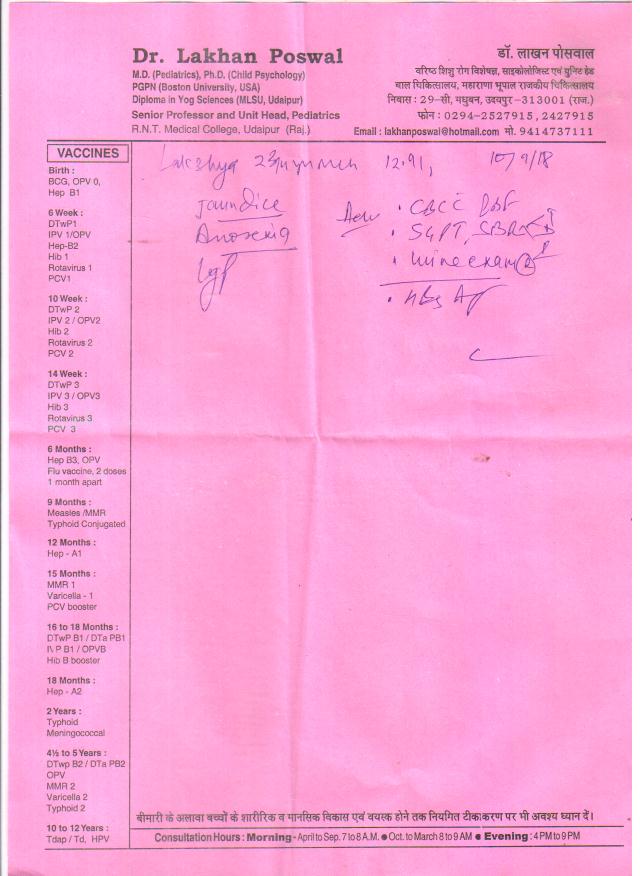 Dr. Lakhan Poswal
M.D. (Pediatrics), Ph.D. (Child Psychology)
PGPN (Boston University, USA)
Diploma in Yog Sciences (MLSU, Udaipur)
Senior Professor and Unit Head, Pediatrics
R.N.T. Medical College, Udaipur (Raj.)
डॉ. लाखन पोसवाल
वरिष्ठ शिशु रोग विशेषज्ञ, साइकोलोजिस्ट एवं यूनिट हेड
बाल चिकित्सालय, महाराणा भूपाल राजकीय चिकित्सालय
निवास : 29-सी, मधुबन, उदयपुर-313001 (राज.)
फोन : 0294-2527915, 2427915
Email : lakhanposwal@hotmail.com मो. 9414737111
Lakshya
Jaundice
Anorexia
CBCC
SGPT,
urine exam
VACCINES
Birth :
BCG, OPV 0,
Hep B1
6 Week :
DTwP1
IPV 1/OPV
Hep-B2
Hib 1
Rotavirus 1
PCV1
10 Week :
DTwP 2
IPV 2 / OPV2
Hib 2
Rotavirus 2
PCV 2
14 Week :
DTwP 3
IPV 3 / OPV3
Hib 3
Rotavirus 3
PCV 3
6 Months :
Hep B3, OPV
Flu vaccine, 2 doses
1 month apart
9 Months :
Measles /MMR
Typhoid Conjugated
12 Months :
Hep - A1
15 Months :
MMR 1
Varicella - 1
PCV booster
16 to 18 Months :
DTwP B1 / DTa PB1
P B1 / OPVB
Hib B booster
18 Months :
Hep - A2
2 Years :
Typhoid
Meningococcal
4½ to 5 Years :
DTwp B2 / DTa PB2
OPV
MMR 2
Varicella 2
Typhoid 2
10 to 12 Years :
Tdap / Td, HPV
बीमारी के अलावा बच्चों के शारीरिक व मानसिक विकास एवं वयस्क होने तक नियमित टीकाकरण पर भी अवश्य ध्यान दें।
Consultation Hours : Morning - April to Sep. 7 to 8 A.M. ● Oct. to March 8 to 9 AM ● Evening : 4 PM to 9 PM